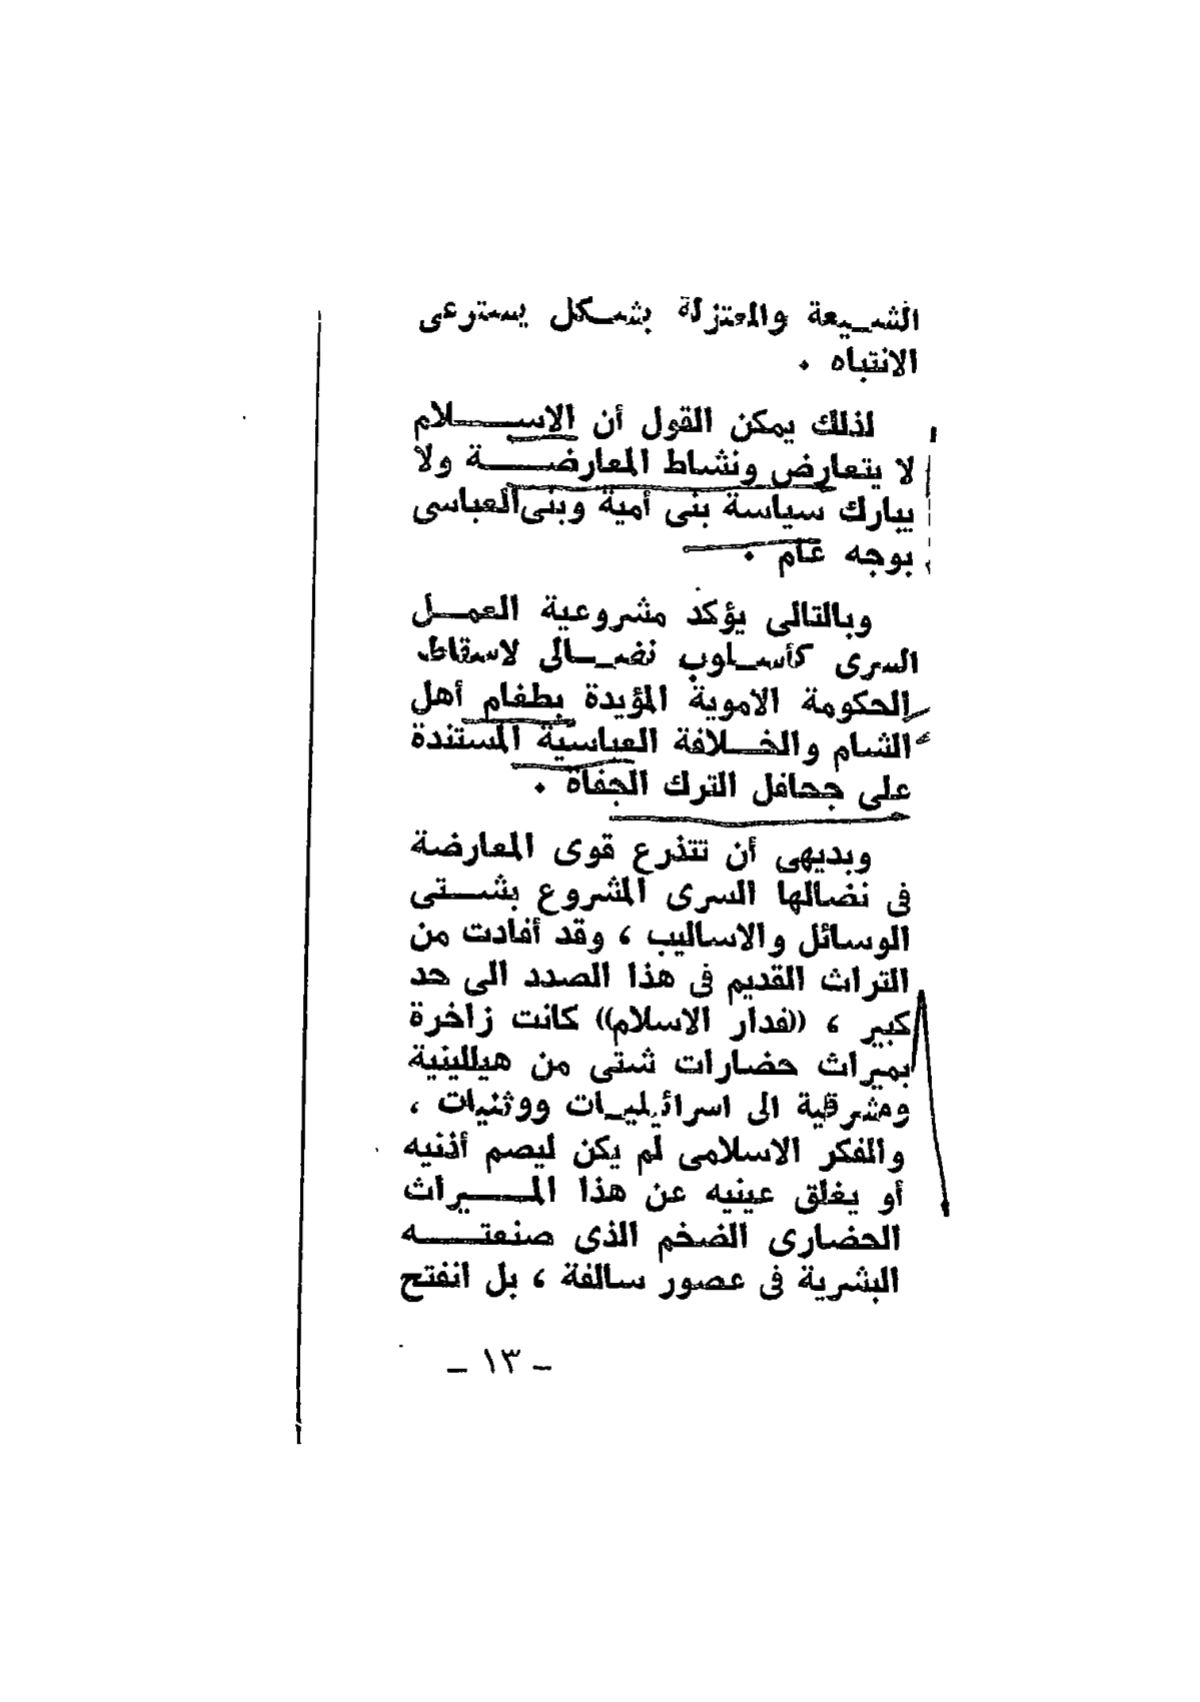 الشيعة والمعتزلة بشكل يسترعى
الانتباه .
لذلك يمكن القول أن الاسلام
لا يتعارض ونشاط المعارضة ولا
يبارك سياسة بنى أمية وبنى العباسى
بوجه عام .
وبالتالى يؤكد مشروعية العمل
السرى كأسلوب نضالى لاسقاط
الحكومة الاموية المؤيدة بطغام أهل
الشام والخلافة العباسية المستندة
على جحافل الترك الجفاة .
وبديهى أن تتذرع قوى المعارضة
فى نضالها السرى المشروع بشتى
الوسائل والاساليب ، وقد أفادت من
التراث القديم فى هذا الصدد الى حد
كبير ، ((فدار الاسلام)) كانت زاخرة
بميراث حضارات شتى من هيللينية
ومشرقية الى اسرائيليات ووثنيات ،
والفكر الاسلامى لم يكن ليصم أذنيه
أو يغلق عينيه عن هذا الميراث
الحضارى الضخم الذى صنعته
البشرية فى عصور سالفة ، بل انفتح
- ١٣ -